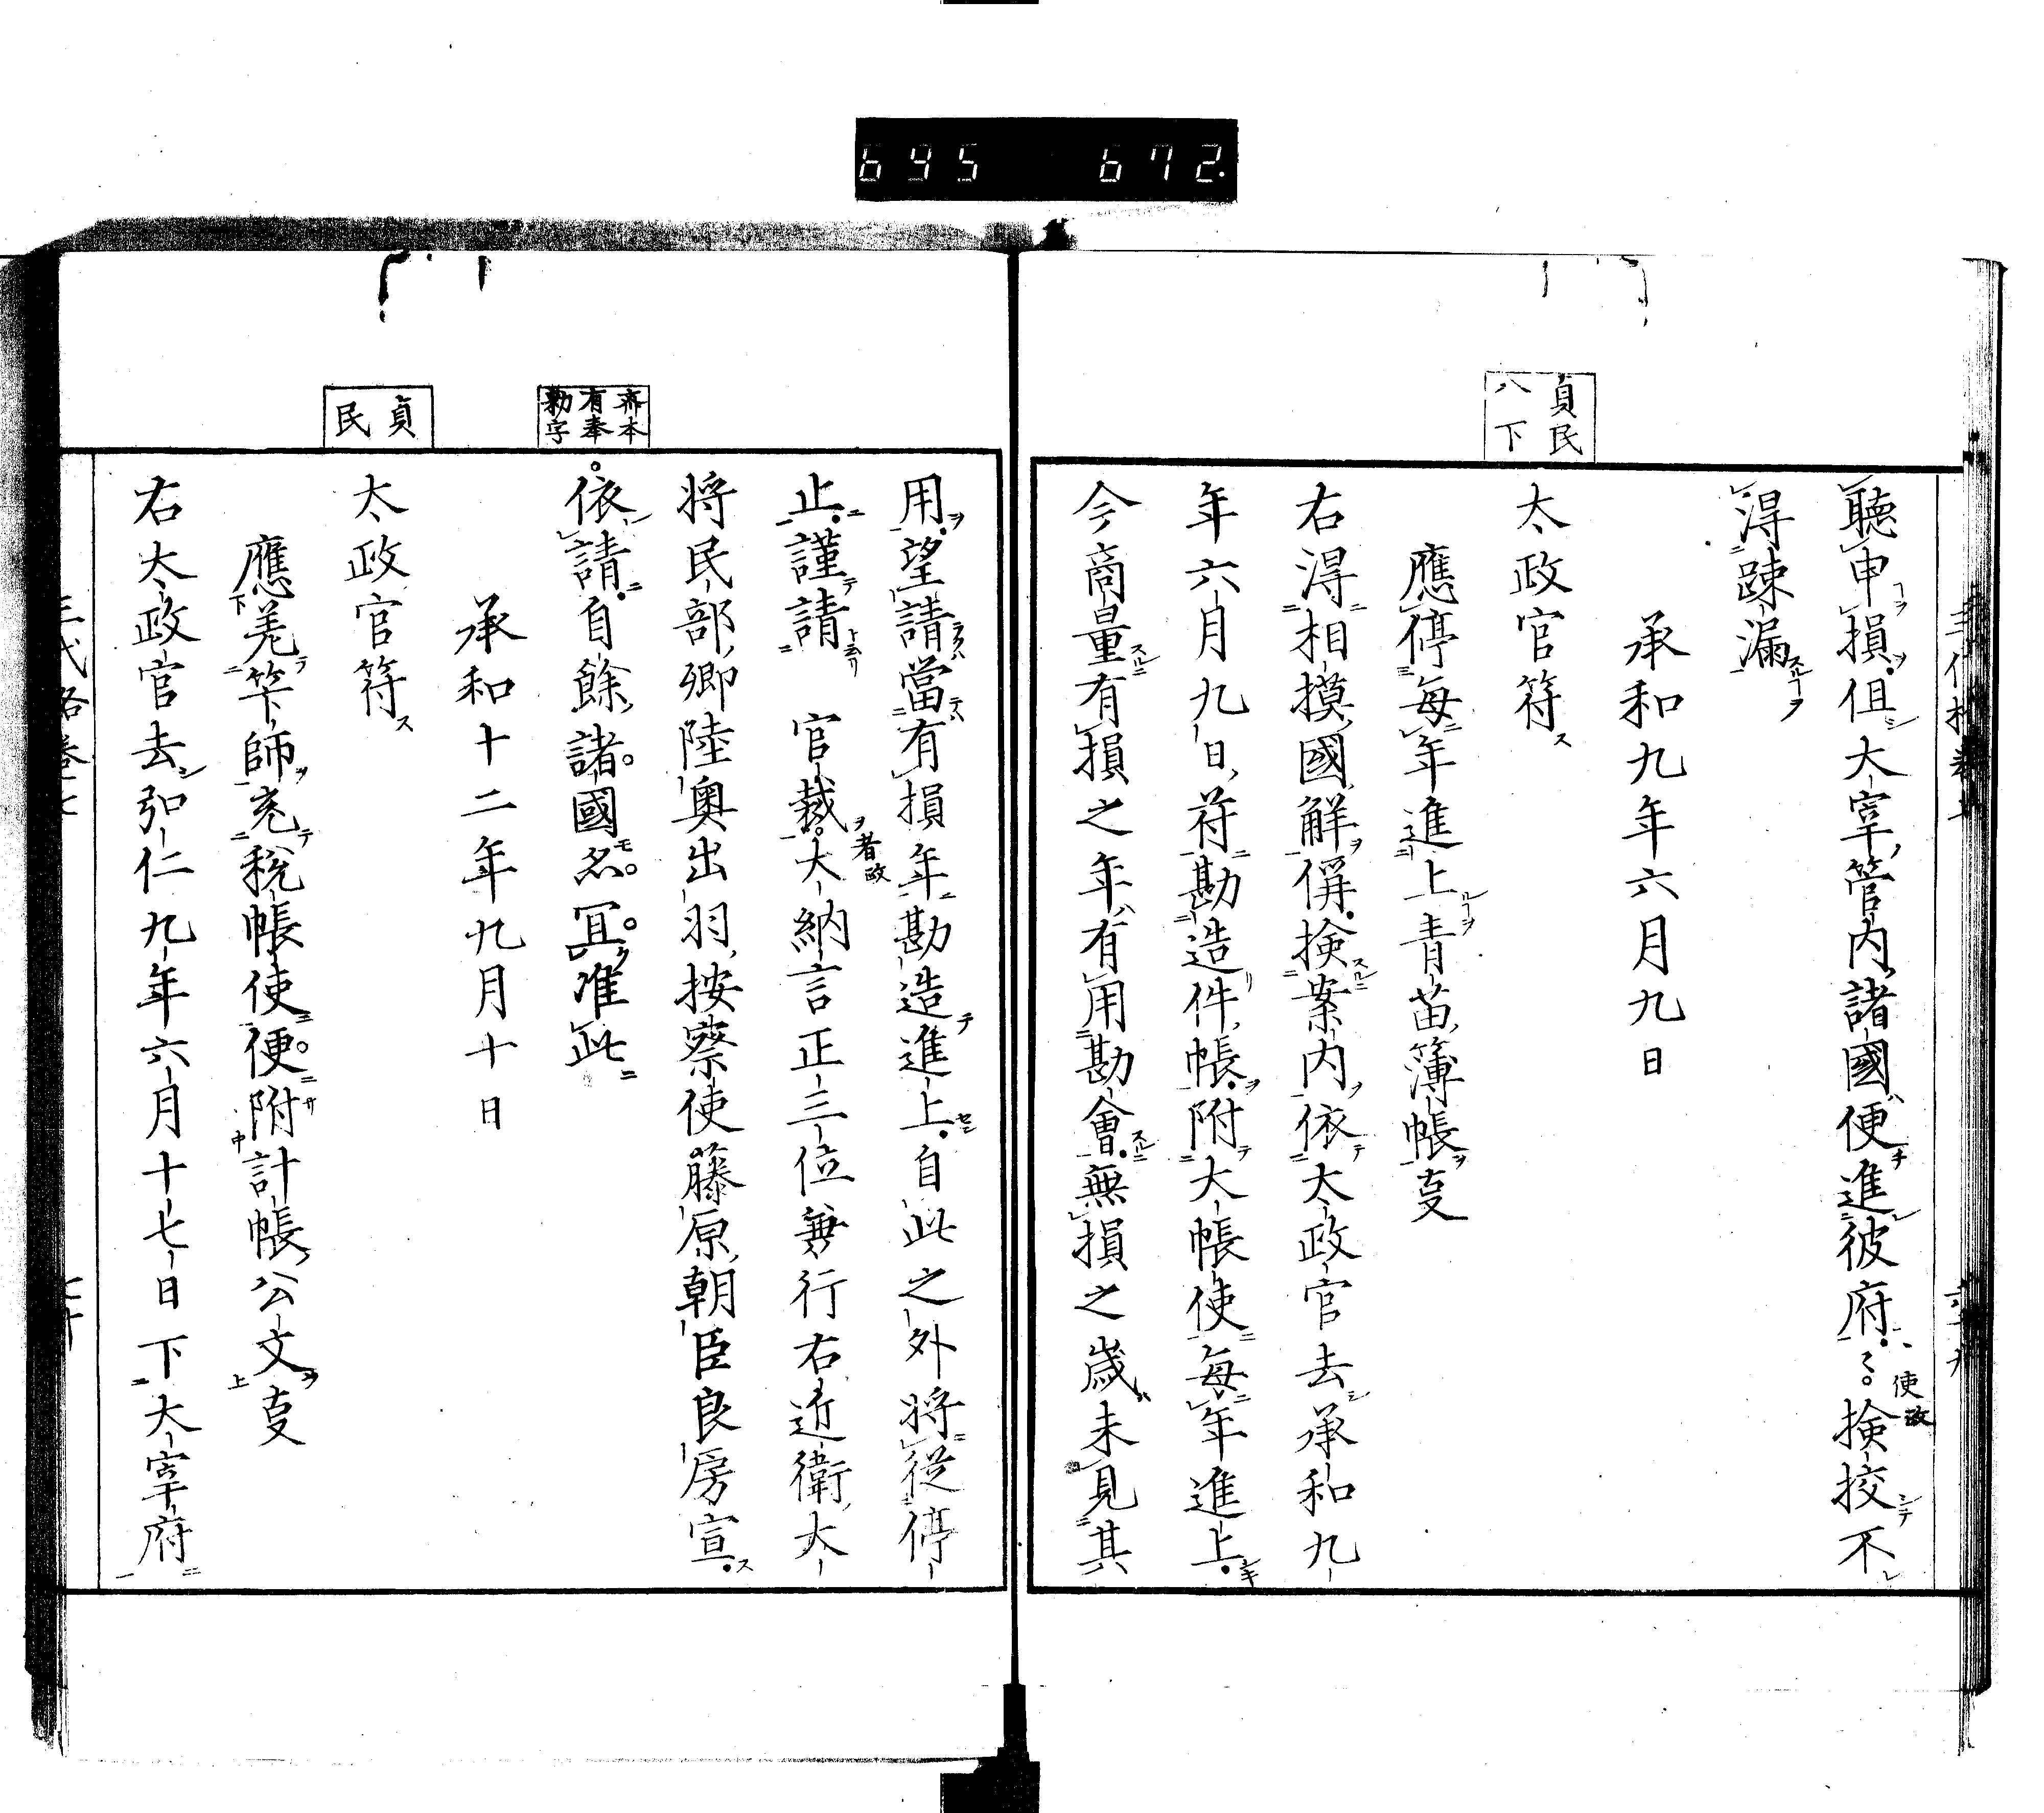 695 672.
貞民
八下
聴申損但大宰管内諸國便進彼府〻検挍不
使敀
淂踈漏
承和九年六月九日
太政官符
應停每年進上青苗簿帳㕝
右淂相摸國解偁検案内依太政官去承和九
年六月九日符勘造件帳附大帳使每年進上
今商量有損之年有用勘會無損之歳未見其
用望請當有損年勘造進上自此之外將從停
止謹請 官裁大納言正三位兼行右近衛大
者政
將民部卿陸奥出羽按察使藤原朝臣良房宣
齊本
有奉
勅字
依請自餘諸國名冝准此
承和十二年九月十日
貞
民
太政官符
應差竿師充税帳使便附計帳公文㕝
右太政官去弘仁九年六月十七日下大宰府